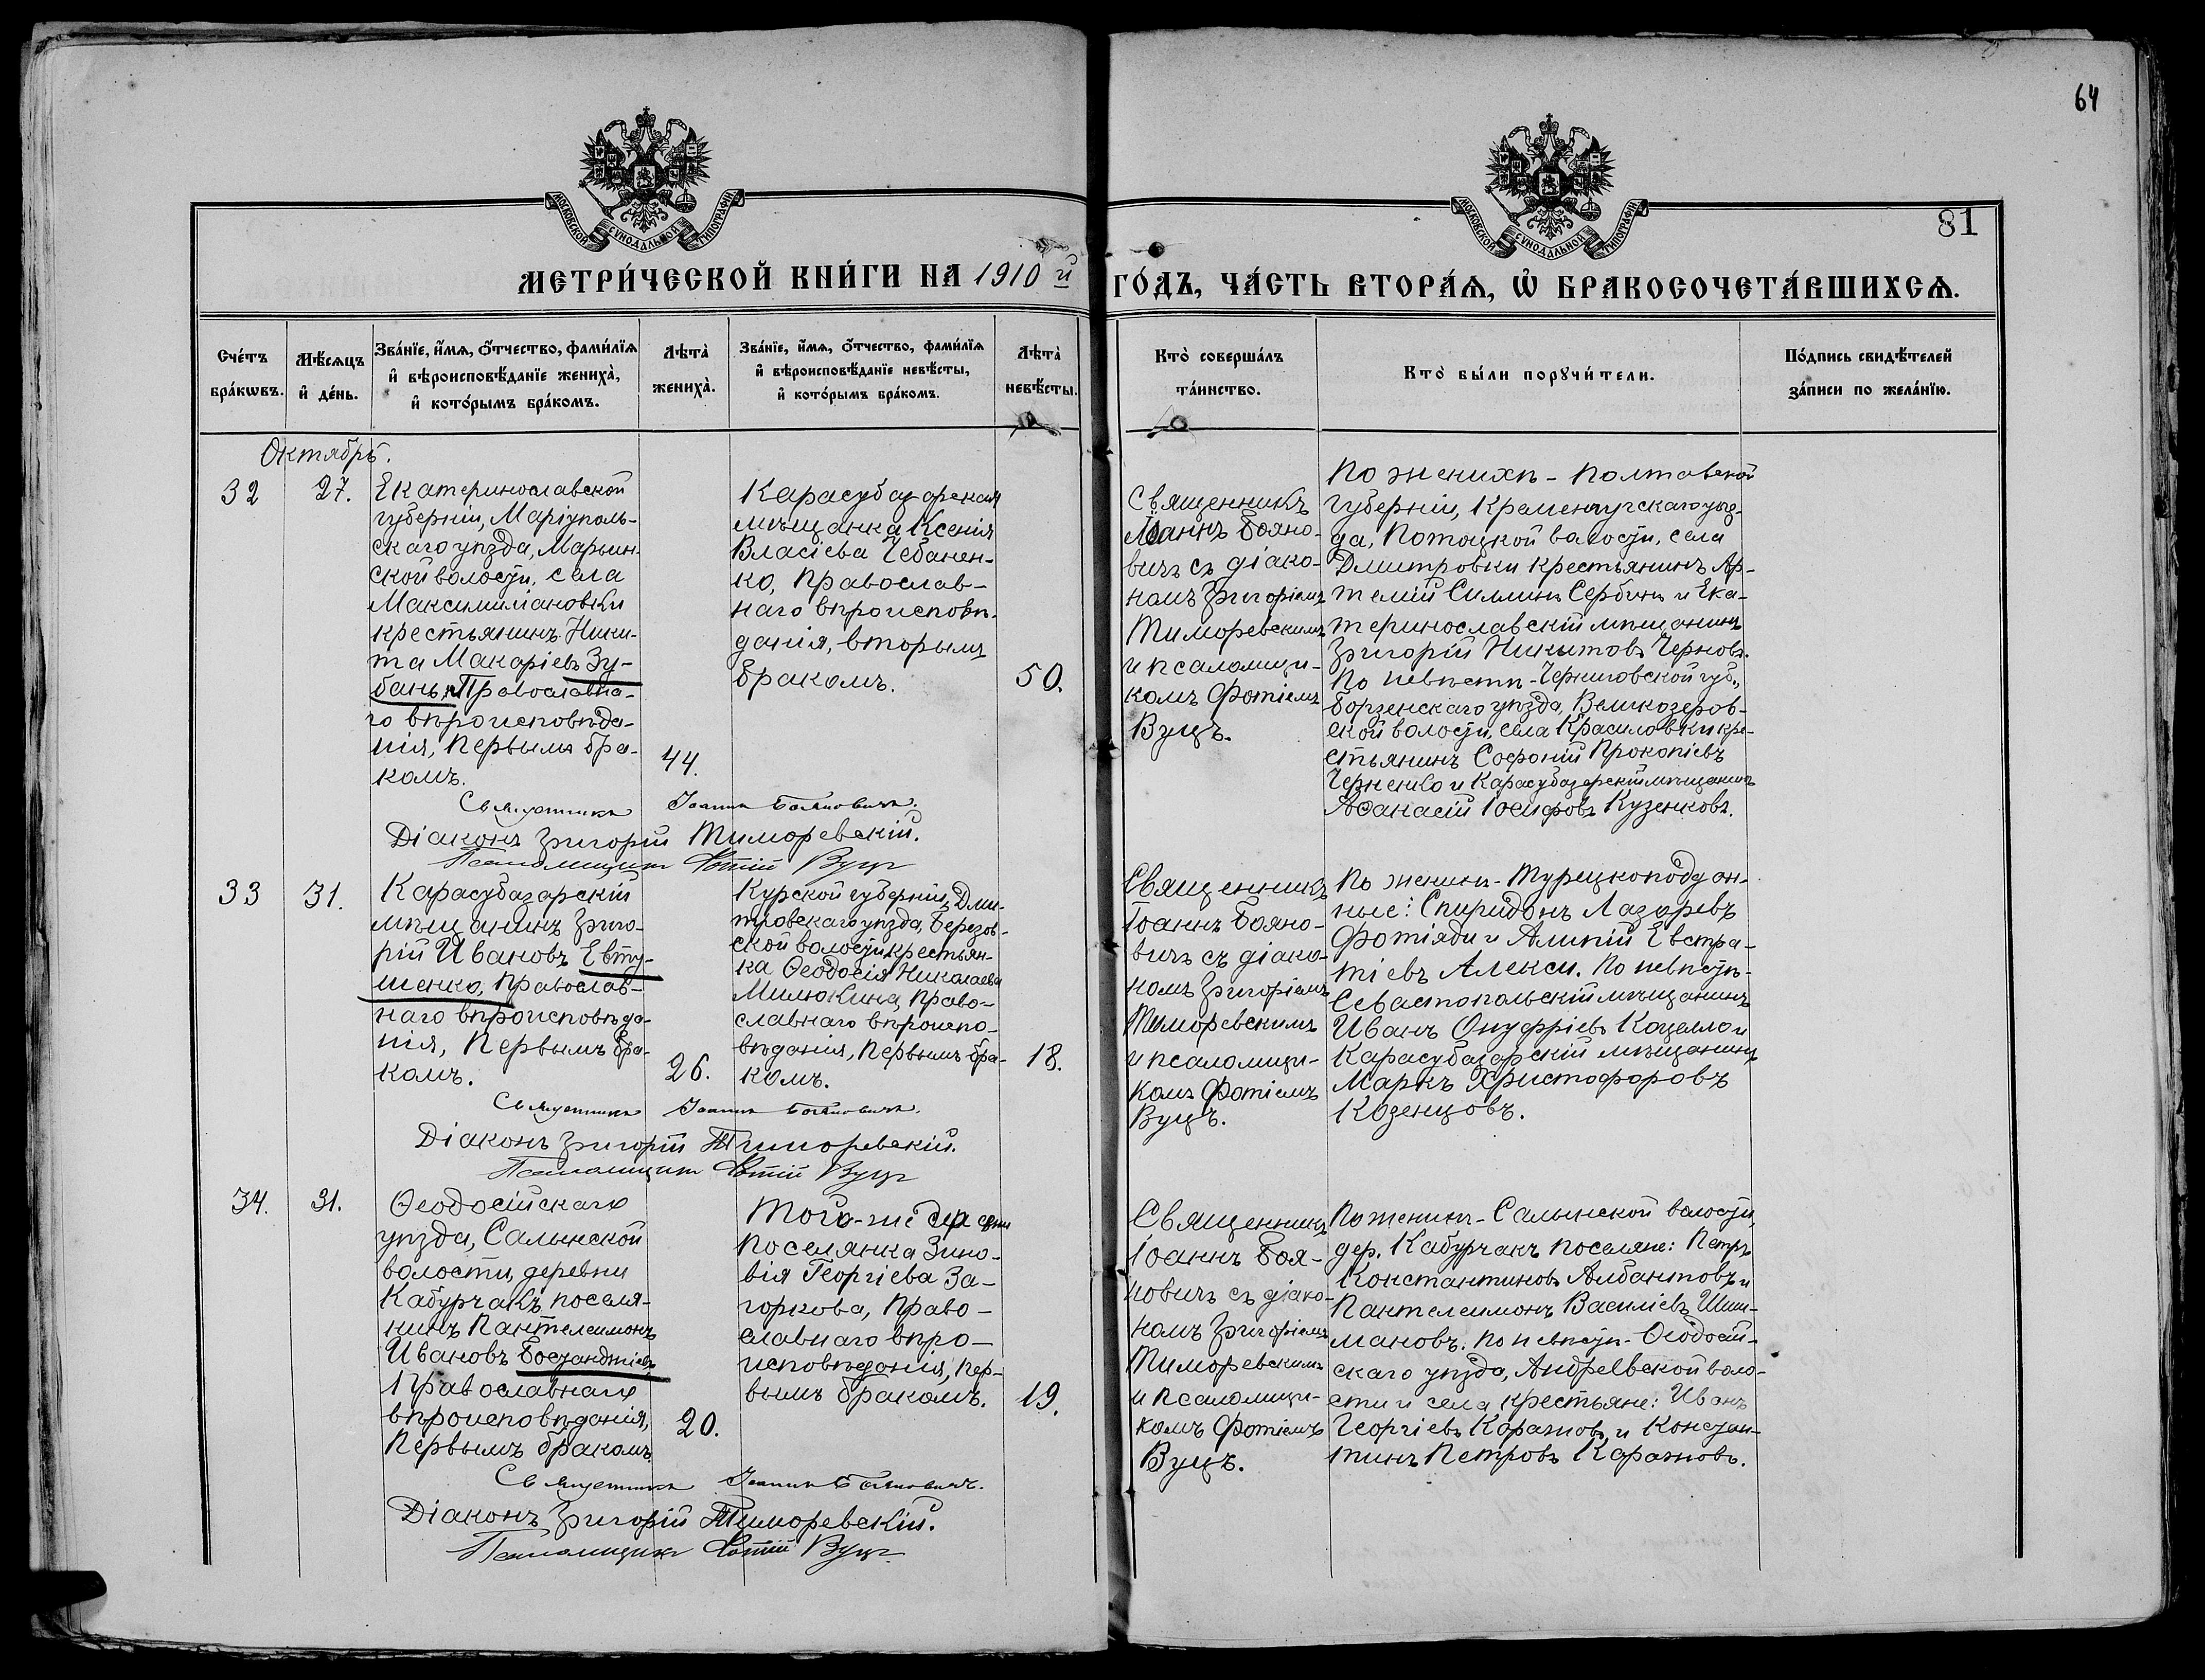 64
81
МОСКОВСКОЙ СУНОДАЛЬНОЙ ТИПОГРАФІИ
МОСКОВСКОЙ СУНОДАЛЬНОЙ ТИПОГРАФІИ
МЕТРИ́ЧЕСКОЙ КНИ́ГИ НА 1910й ГО́ДЪ, ЧА́СТЬ ВТОРА́Ѧ, Ѽ БРАКОСОЧЕТА́ВШИХСѦ.
Сче́тъ
бра́кѡвъ.
Мѣ́сѧцъ
и҆ де́нь.
Зва́нїе, и҆́мѧ, ѻ҆́тчество, фами́лїѧ
и҆ вѣроисповѣ́данїе жениха̀,
и҆ кото́рымъ бра́комъ.
Лѣта̀
жениха̀.
Зва́нїе, и҆́мѧ, ѻ҆́тчество, фами́лїѧ
и҆ вѣроисповѣ́данїе невѣ́сты,
и҆ кото́рымъ бра́комъ.
Лѣта̀
невѣ́сты.
Кто̀ соверша́лъ
та́инство.
Кто̀ бы́ли порꙋчи́тели.
По́дпись свидѣ́телей
за́писи по жела́нїю.
Октябрь.
32
27.
Екатеринославской
губерніи, Маріуполь-
скаго уѣзда, Марьин-
ской волости, села
Максимиліановки
крестьянинъ Ники-
та Макаріевъ Зу-
бань, Православна-
го вѣроисповѣда-
нія, первымъ бра-
комъ.
44.
Карасубазарская
мѣщанка Ксенія
Власіева Чебанен-
ко, православ-
наго вѣроисповѣ-
данія, вторымъ
бракомъ.
50.
Священникъ
Іоаннъ Бояно-
вичъ съ діако-
номъ Григоріемъ
Тиморевскимъ
и псаломщи-
комъ Фотіемъ
Вуцъ.
По женихѣ - Полтавской
губерніи, Кременчугскаго уѣз-
да, Потоцкой волости, села
Дмитровки крестьянинъ Ар-
темій Симминъ Сербинъ и Ека-
теринославскій мѣщанинъ
Григорій Никитовъ Черновъ.
По невѣстѣ - Черниговской губ.,
Борзенскаго уѣзда, Великозеров-
ской волости, села Красиловки кре-
стьянинъ Софоній Прокопіевъ
Черненко и Карасубазарскій мѣщанинъ
Аѳанасій Іосифовъ Кузенковъ.
Священникъ Іоаннъ Бояновичъ.
Діаконъ Григорій Тиморевскій.
Псаломщикъ Фотій Вуцъ
33
31.
Карасубазарскій
мѣщанинъ Григо-
рій Ивановъ Евту-
шенко, православ-
наго вѣроисповѣда-
нія, первымъ бра-
комъ.
26.
Курской губерніи, Дми-
тровскаго уѣзда, Березов-
ской волости, крестьян-
ка Ѳеодосія Николаева
Милюкина, право-
славнаго вѣроиспо-
вѣданія, первымъ бра-
комъ.
18.
Священникъ
Іоаннъ Бояно-
вичъ съ діако-
номъ Григоріемъ
Тиморевскимъ
и псаломщи-
комъ Фотіемъ
Вуцъ.
По женихѣ - Турецкоподдан-
ные: Спиридонъ Лазаревъ
Фотіяди и Алипій Евстра-
тіевъ Алекси. По невѣстѣ -
Севастопольскій мѣщанинъ
Иванъ Онуфріевъ Коцелло и
Карасубазарскій мѣщанинъ
Маркъ Христофоровъ
Козенцовъ.
Священникъ Іоаннъ Бояновичъ.
Діаконъ Григорій Тиморевскій.
Псаломщикъ Фотій Вуцъ
34.
31.
Ѳеодосійскаго
уѣзда, Салынской
волости, деревни
Кабурчакъ поселя-
нинъ Пантелеимонъ
Ивановъ Бостанджіевъ
Православнаго
вѣроисповѣданія,
первымъ бракомъ
20.
Того-же
поселянка Зино-
вія Георгіева За-
горкова, право-
славнаго вѣро-
исповѣданія, пер-
вымъ бракомъ.
19.
Священникъ
Іоаннъ Боя-
новичъ съ діако-
номъ Григоріемъ
Тиморевскимъ
и псаломщи-
комъ Фотіемъ
Вуцъ.
По женихѣ - Салынской волости,
дер. Кабурчакъ поселяне: Петръ
Константиновъ Албантовъ и
Пантелеимонъ Василіевъ Шиш-
мановъ. По невѣстѣ - Ѳеодосій-
скаго уѣзда, Андреевской воло-
сти и села крестьяне: Иванъ
Георгіевъ Каражовъ и Констан-
тинъ Петровъ Каражовъ.
Священникъ Іоаннъ Бояновичъ.
Діаконъ Григорій Тиморевскій.
Псаломщикъ Фотій Вуцъ.